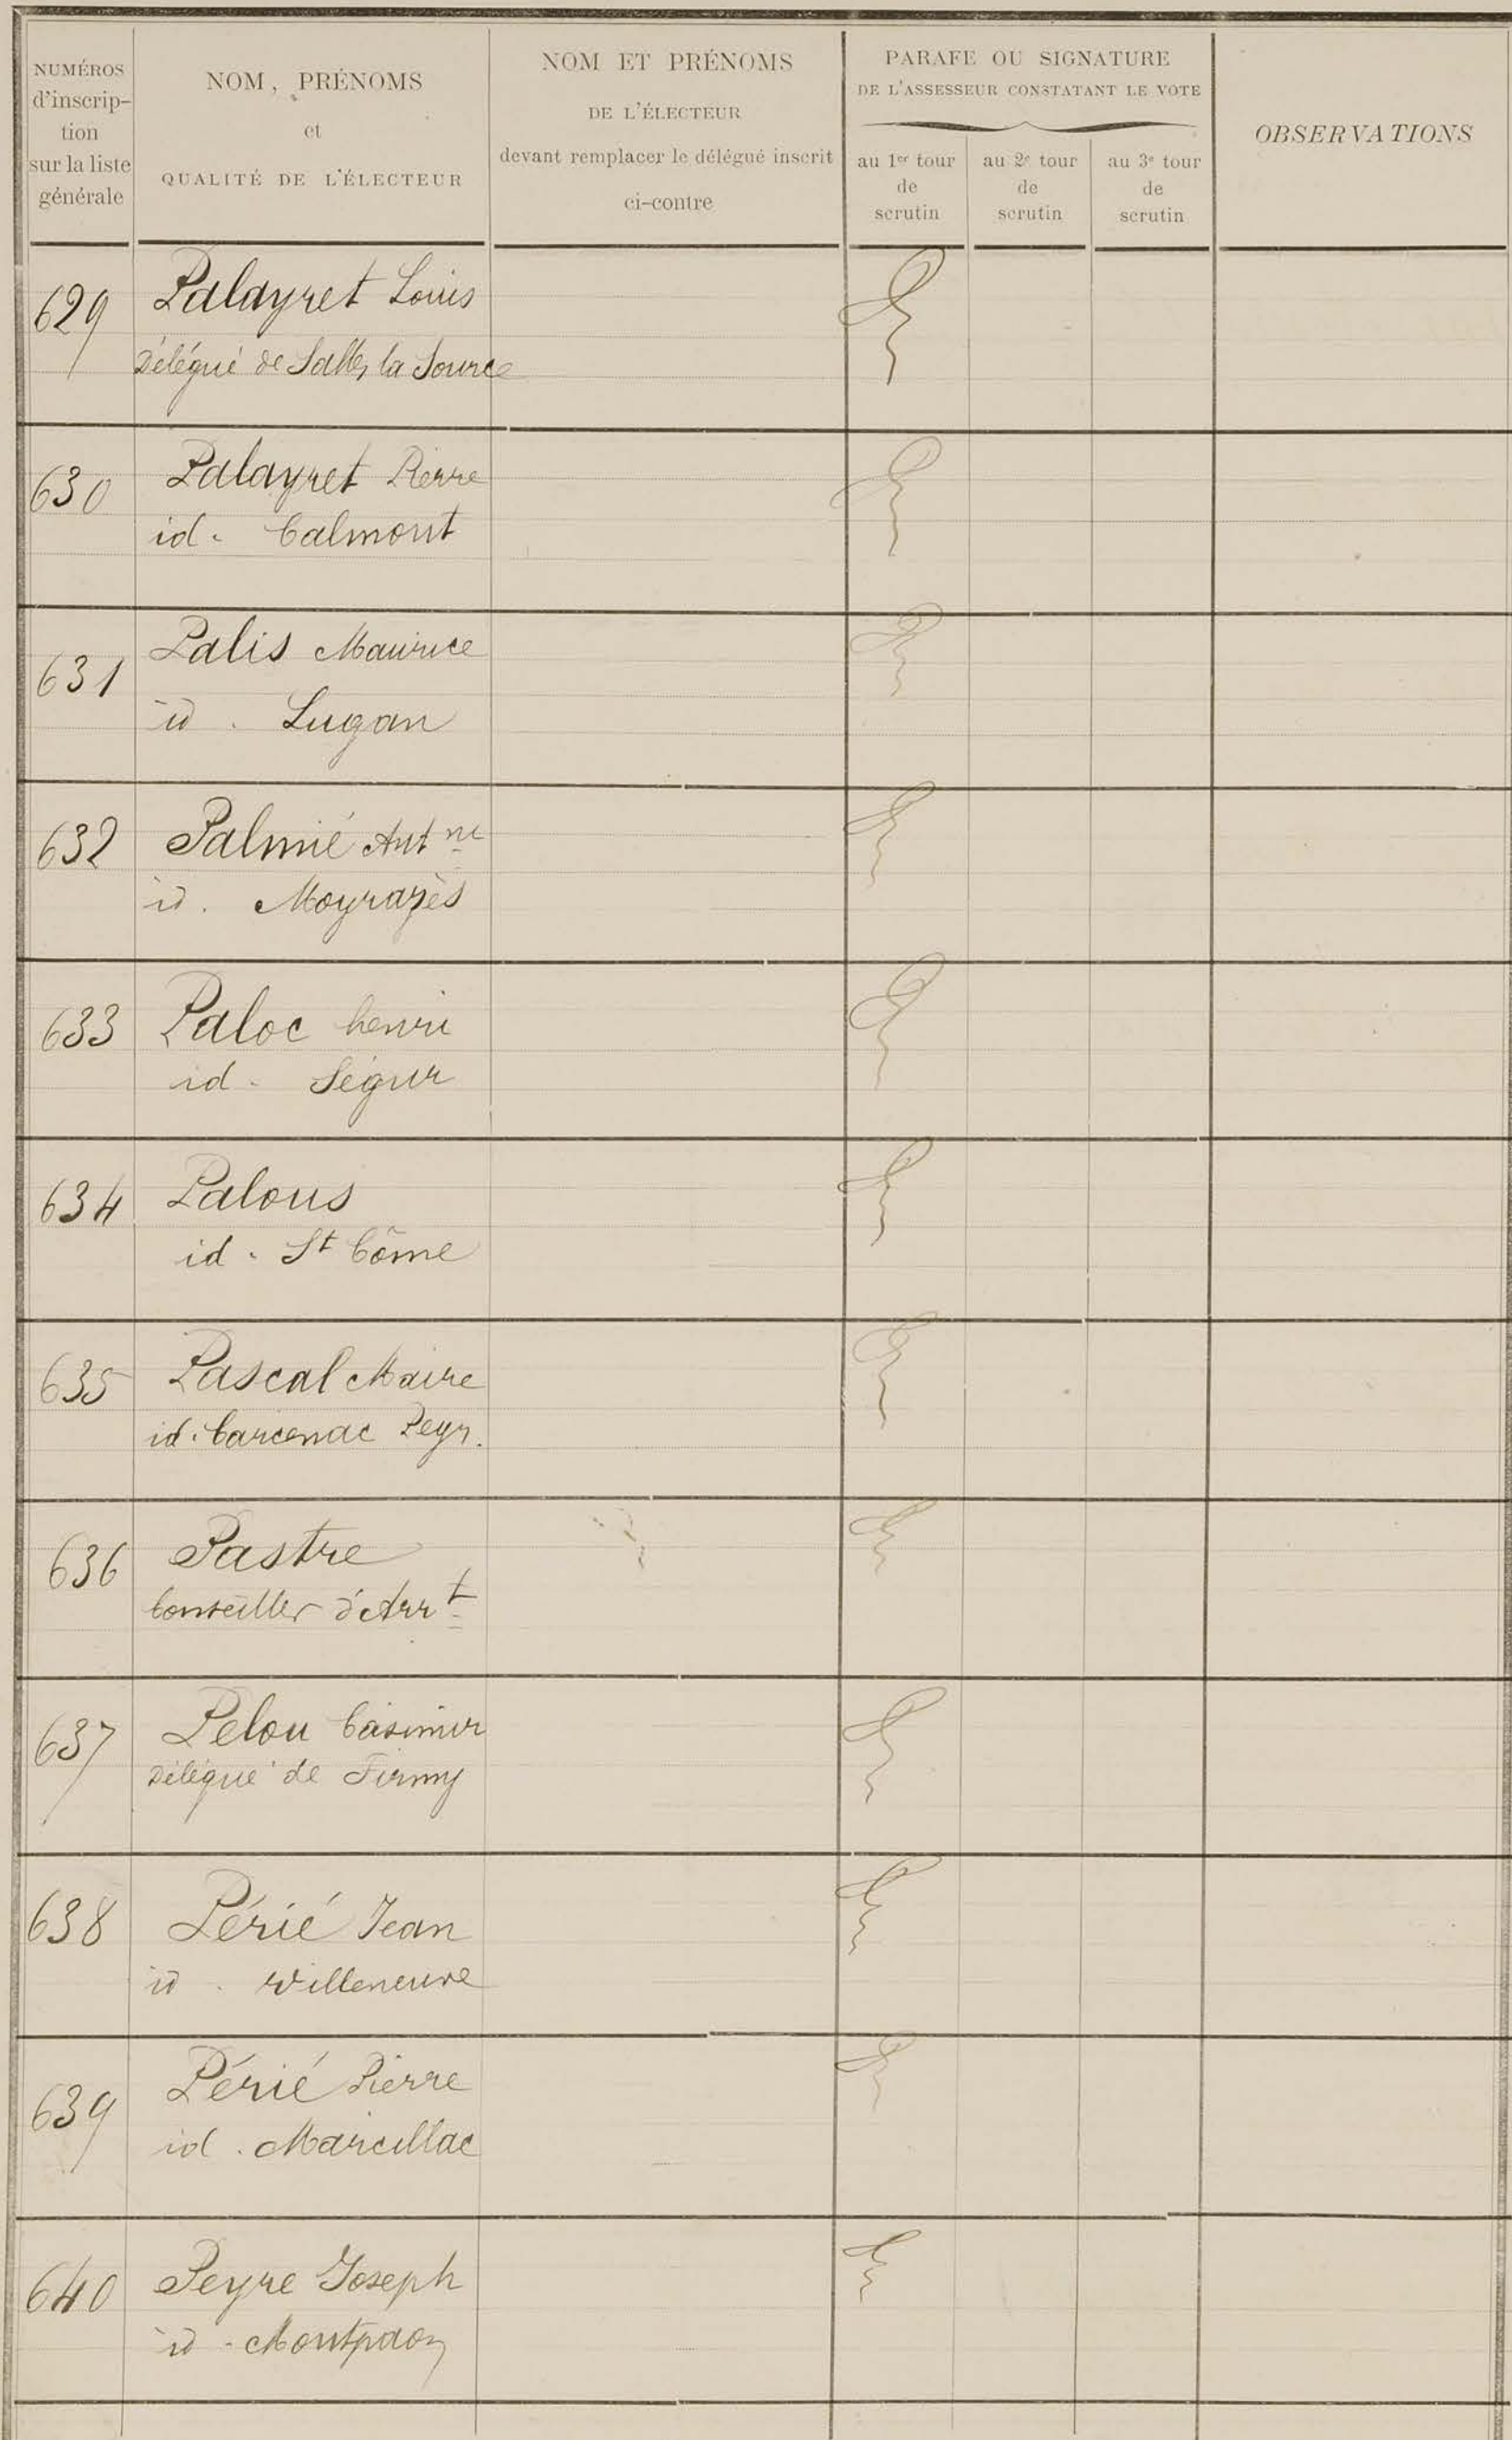 NUMÉROS
d'inscrip-
tion
sur la liste
générale
NOM, PRÉNOMS
et
QUALITÉ DE L'ÉLECTEUR
NOM ET PRÉNOMS
DE L'ÉLECTEUR
devant remplacer le délégué inscrit
ci-contre
PARAFE OU SIGNATURE
DE L'ASSESSEUR CONSTATANT LE VOTE
au 1er tour
de
scrutin
au 2e tour
de
scrutin
au 3e tour
de
scrutin
OBSERVATIONS
629 Palayret Louis
Délégué de Salles la Source
630 Palayret Pierre
id. Calmont
631 Palis Maurice
id. Lugan
632 Palmié Antne
id. Moyrazès
633 Paloc henri
id. Ségur
634 Palous
id. St Côme
635 Pascal Maire
id. Carcenac Peyr.
636 Pastre
Conseiller d'Arrt
637 Pelou Casimir
Délégué de Firmy
638 Périé Jean
id. Villeneuve
639 Périé Pierre
id. Marcillac
640 Peyre Joseph
id. Montpaon